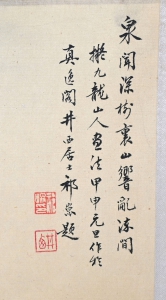 泉聞深樹裏山響亂流間
擬九龍山人画法甲申元旦作於
真逸閣井西居士祁崑題